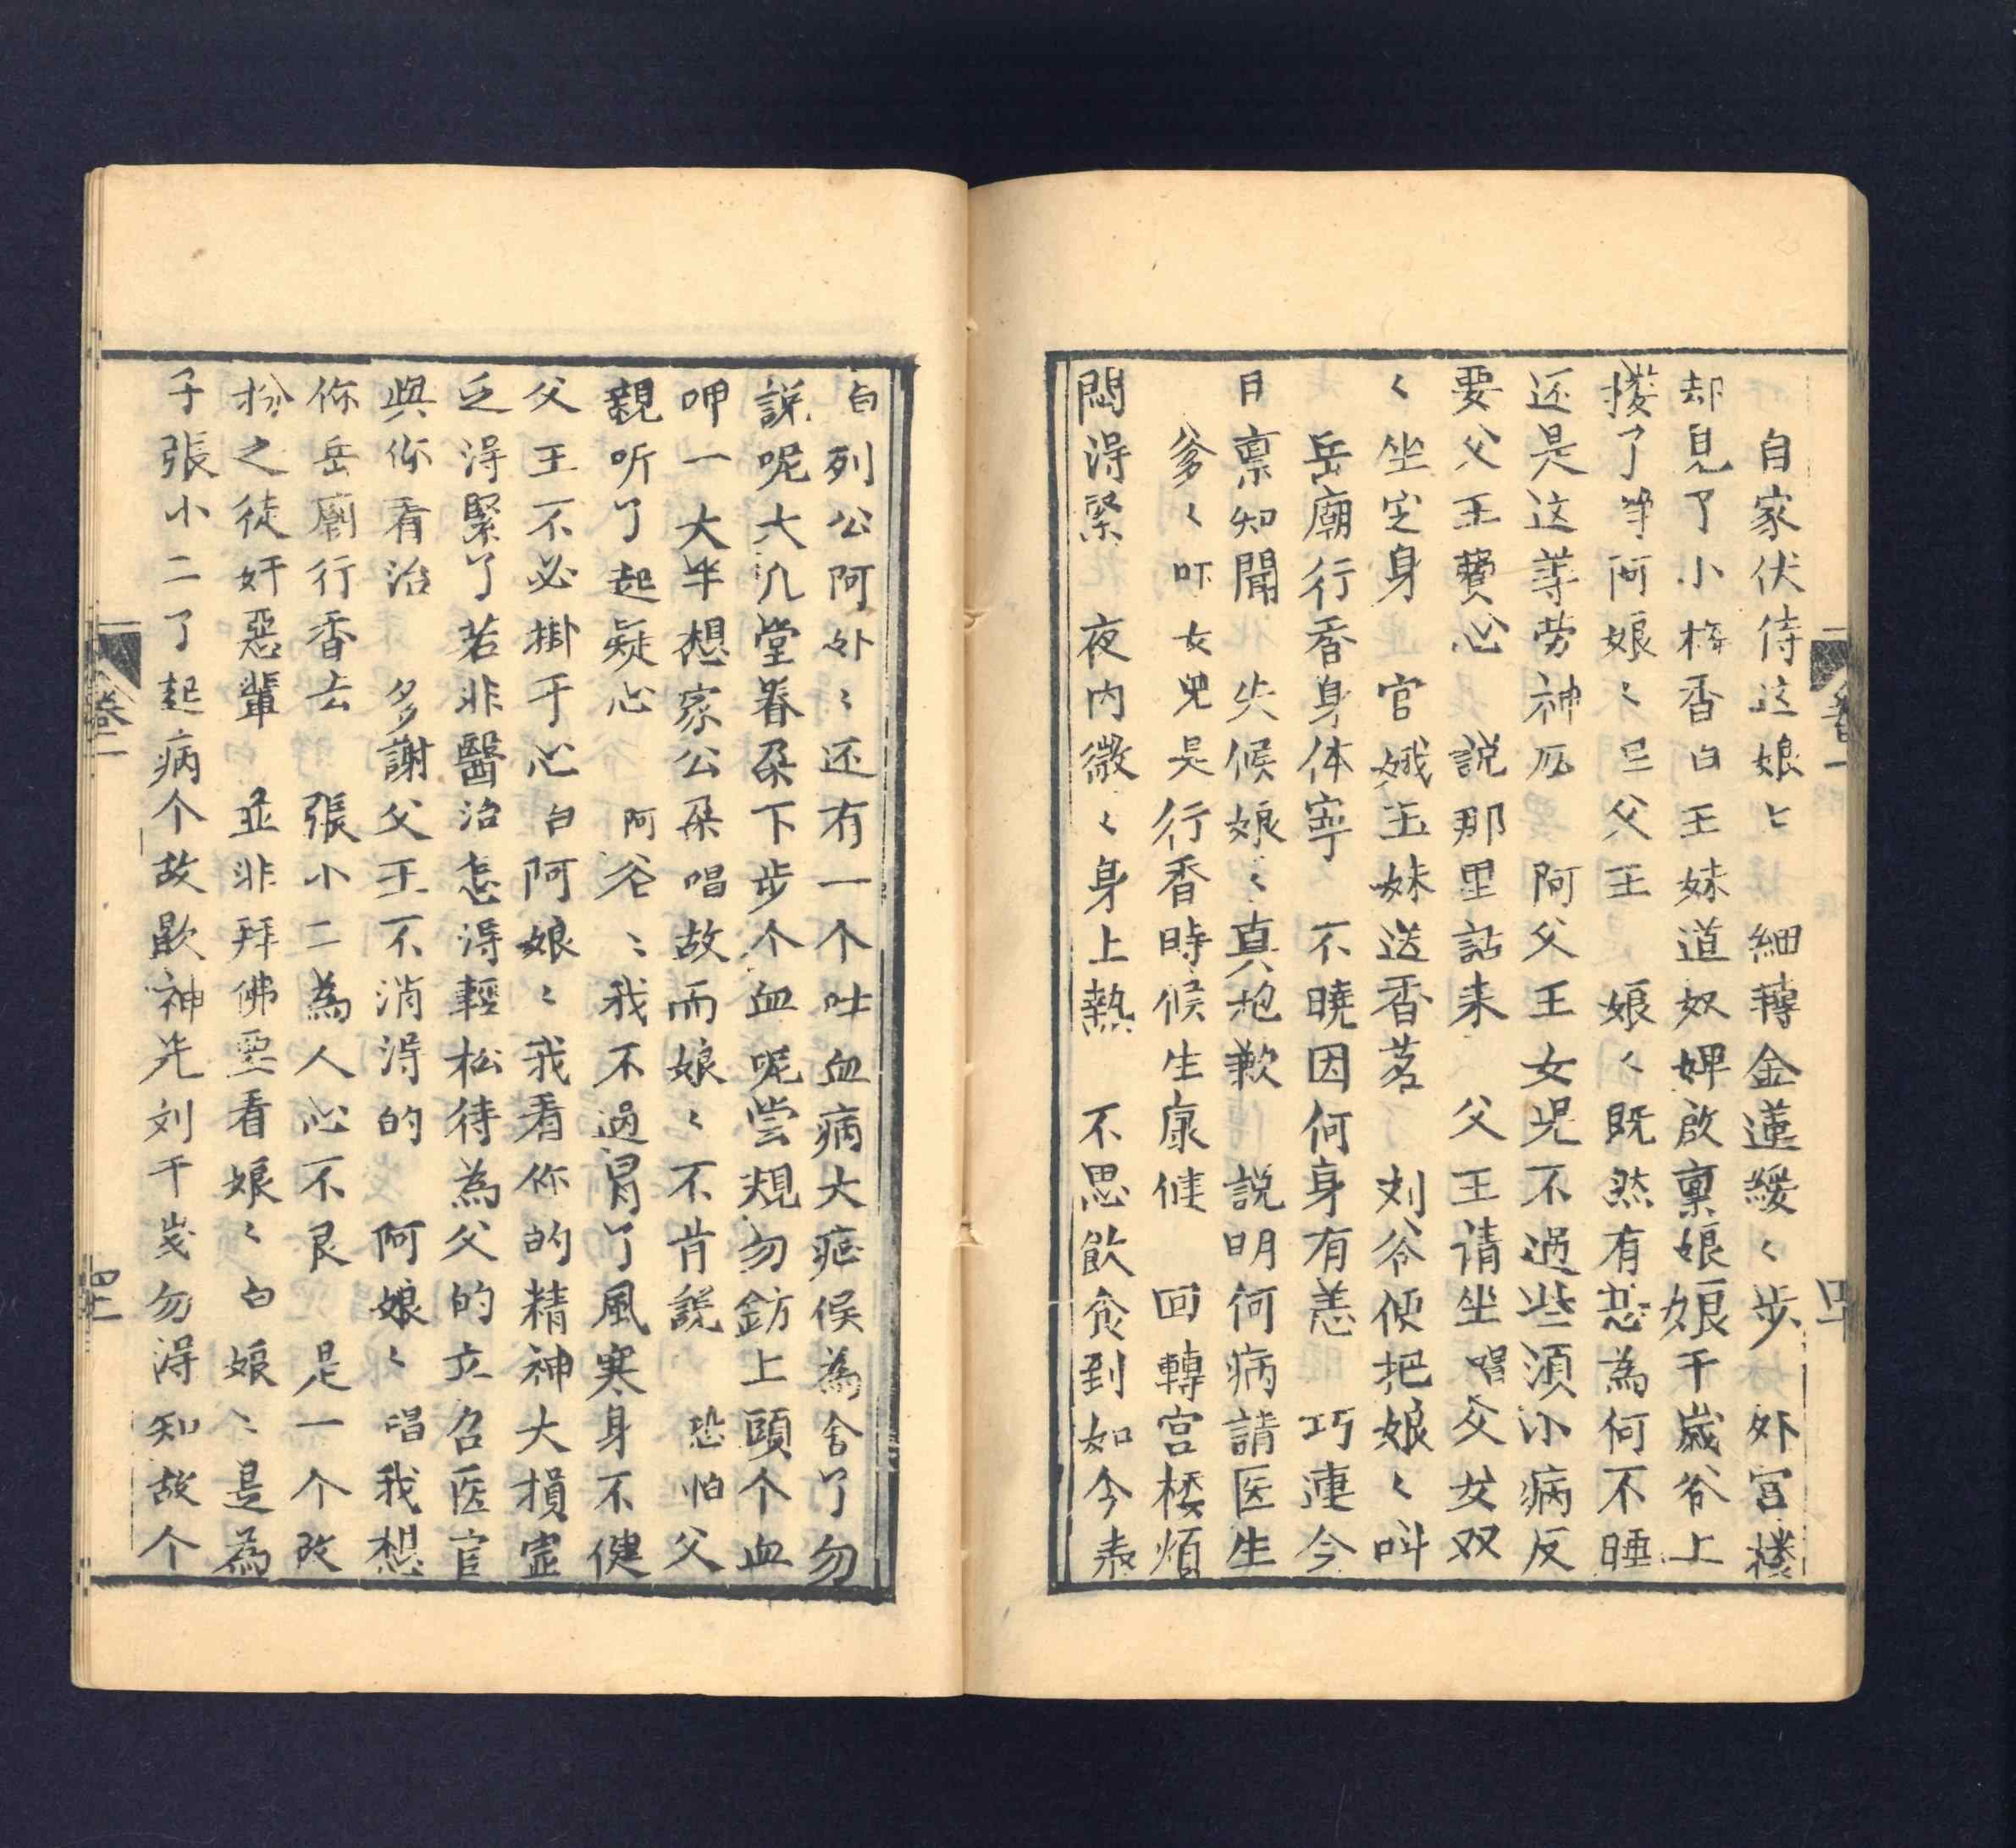 自家伏侍这娘〻　細轉金蓮緩〻步　外宮楼
却見了小梅香白王妹道奴婢啟禀娘娘千歲爷上
接了　阿娘〻　父王　娘〻既然有恙為何不睡
还是这等劳神　阿父王女児不過些須小病反
要父王費心　説那里話来　父王请坐唱父女双
〻坐定身　官娥玉妹送香茗　刘爷便把娘〻叫
岳廟行香身体寧　不曉因何身有恙　巧連今
日禀知聞　失候娘〻真抱歉　説明何病請医生
爹〻吓女兒是行香時候生康健　回轉宮楼煩
悶得緊　夜内微〻身上熱　不思飲食到如今
白列公阿外〻还有一个吐血病大症候為舍了勿
説呢大凡堂眷朶下步个血呢尝規勿上頭个血
呷一大半想家公朶唱故而娘〻不肯説　恐怕父
親听了起疑心　阿爷〻我不過冒了風寒身不健
父王不必掛于心白阿娘〻我看你的精神大損虚
乏得緊了若非醫治怎得輕松待為父的立召医官
與你看治　多謝父王不消得的　阿娘〻唱我想
你岳廟行香去　張小二為人心不良　是一个改
扮之徒奸惡輩　並非拜佛要看娘〻白娘〻是為
子張小二了起病个故歇神先刘千岁勿得知故个
卷二
四十
卷二
四十一